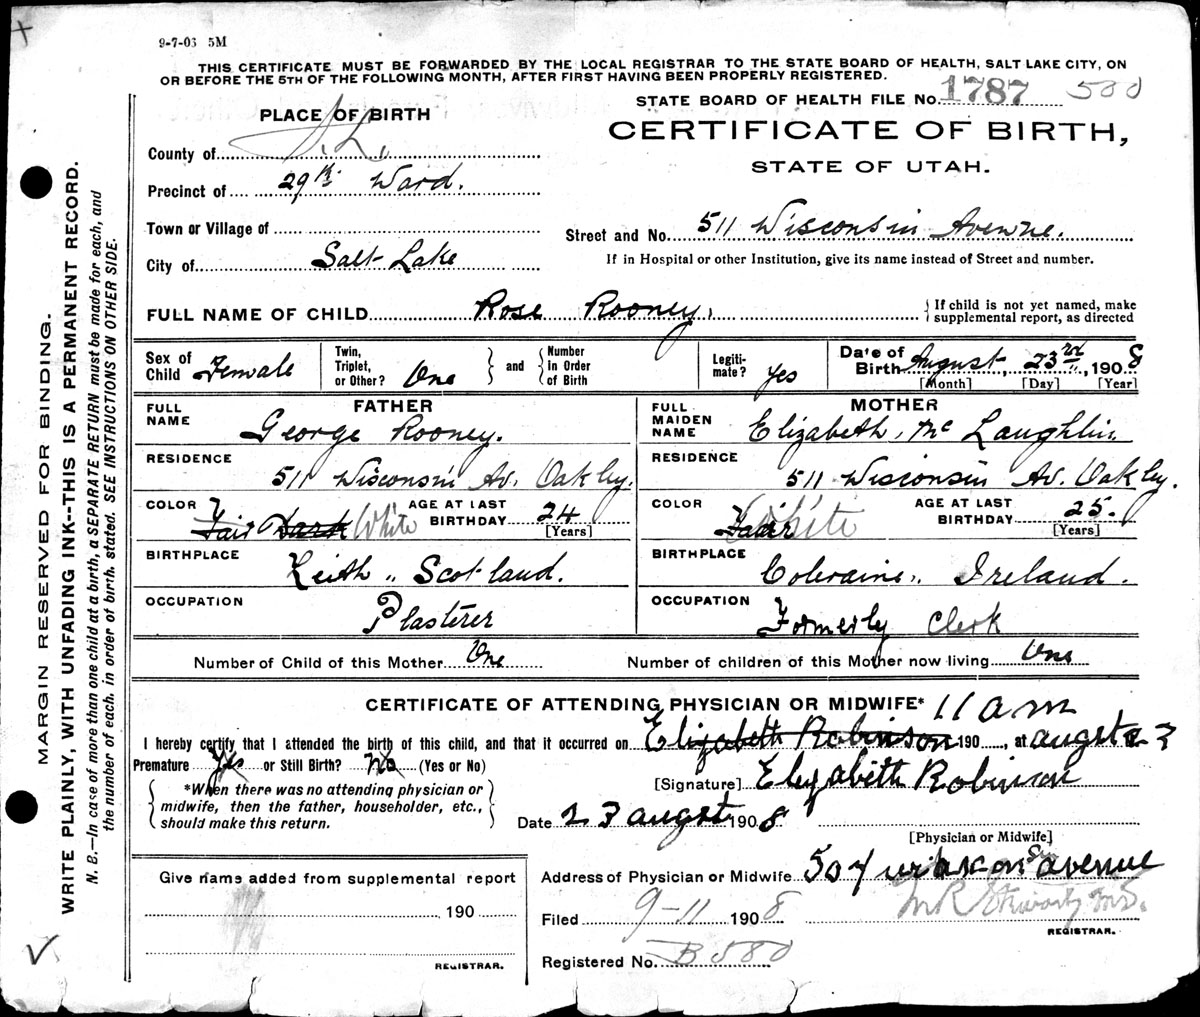 9-7-06 5M
THIS CERTIFICATE MUST BE FORWARDED BY THE LOCAL REGISTRAR TO THE STATE BOARD OF HEALTH, SALT LAKE CITY, ON
OR BEFORE THE 5TH OF THE FOLLOWING MONTH, AFTER FIRST HAVING BEEN PROPERLY REGISTERED.
STATE BOARD OF HEALTH FILE No. 1787 580
PLACE OF BIRTH
CERTIFICATE OF BIRTH,
STATE OF UTAH.
County of S. L.
Precinct of 29th Ward.
Town or Village of
Street and No. 511 Wisconsin Avenue.
City of Salt Lake
If in Hospital or other Institution, give its name instead of Street and number.
FULL NAME OF CHILD Rose Rooney.
If child is not yet named, make
supplemental report, as directed
Sex of
Child Female
Twin,
Triplet,
or Other? One
and
Number
in Order
of Birth
Legiti-
mate? yes
Date of
Birth August, 23rd, 1908
[Month] [Day] [Year]
FATHER
FULL
NAME George Rooney.
RESIDENCE
511 Wisconsin Av. Oakley.
COLOR Fair Dark White
AGE AT LAST
BIRTHDAY 24
[Years]
BIRTHPLACE
Keith „ Scotland.
OCCUPATION
Plasterer
MOTHER
FULL
MAIDEN
NAME Elizabeth Mc Laughlin
RESIDENCE
511 Wisconsin Av. Oakley.
COLOR White
AGE AT LAST
BIRTHDAY 25.
[Years]
BIRTHPLACE
Coleraine „ Ireland.
OCCUPATION
Formerly Clerk
Number of Child of this Mother One
Number of children of this Mother now living One
CERTIFICATE OF ATTENDING PHYSICIAN OR MIDWIFE* 11 am
I hereby certify that I attended the birth of this child, and that it occurred on Elizabeth Robinson 190 , at augst 23
Premature Yes or Still Birth? No (Yes or No)
[Signature] Elizabeth Robinson
*When there was no attending physician or
midwife, then the father, householder, etc.,
should make this return.
Date 23 augst 1908
[Physician or Midwife]
Address of Physician or Midwife 507 avenue
Filed 9-11 1908
REGISTRAR.
Registered No. B580
Give name added from supplemental report
190
REGISTRAR.
MARGIN RESERVED FOR BINDING.
WRITE PLAINLY, WITH UNFADING INK--THIS IS A PERMANENT RECORD.
N. B.—In case of more than one child at a birth, a SEPARATE RETURN must be made for each, and
the number of each, in order of birth, stated. SEE INSTRUCTIONS ON OTHER SIDE.